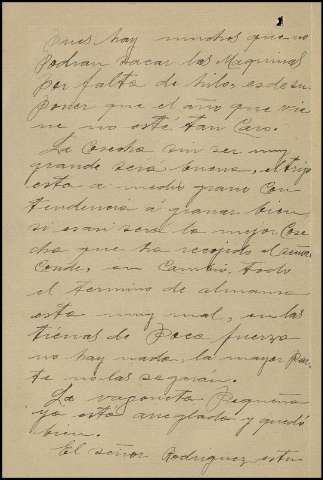 pues hay muchos que no
podran sacar las Maquinas
por falta de hilo, es de su
poner que el año que vie
ne no esté tan Caro.
La Cosecha sin ser muy
grande será buena, el trigo
esta a medio grano Con
tendencia á granar bien
si es asi será la mejor Cose
cha que ha recojido el Señor
Conde, en Cambio, todo
el termino de
esta muy mal, en las
tierras de Poca fuerza
no hay nada, la mayor Par
te no las segarán.
La vagoneta Pequeña
ya está arreglada y quedó
bien.
El señor Rodriguez estu